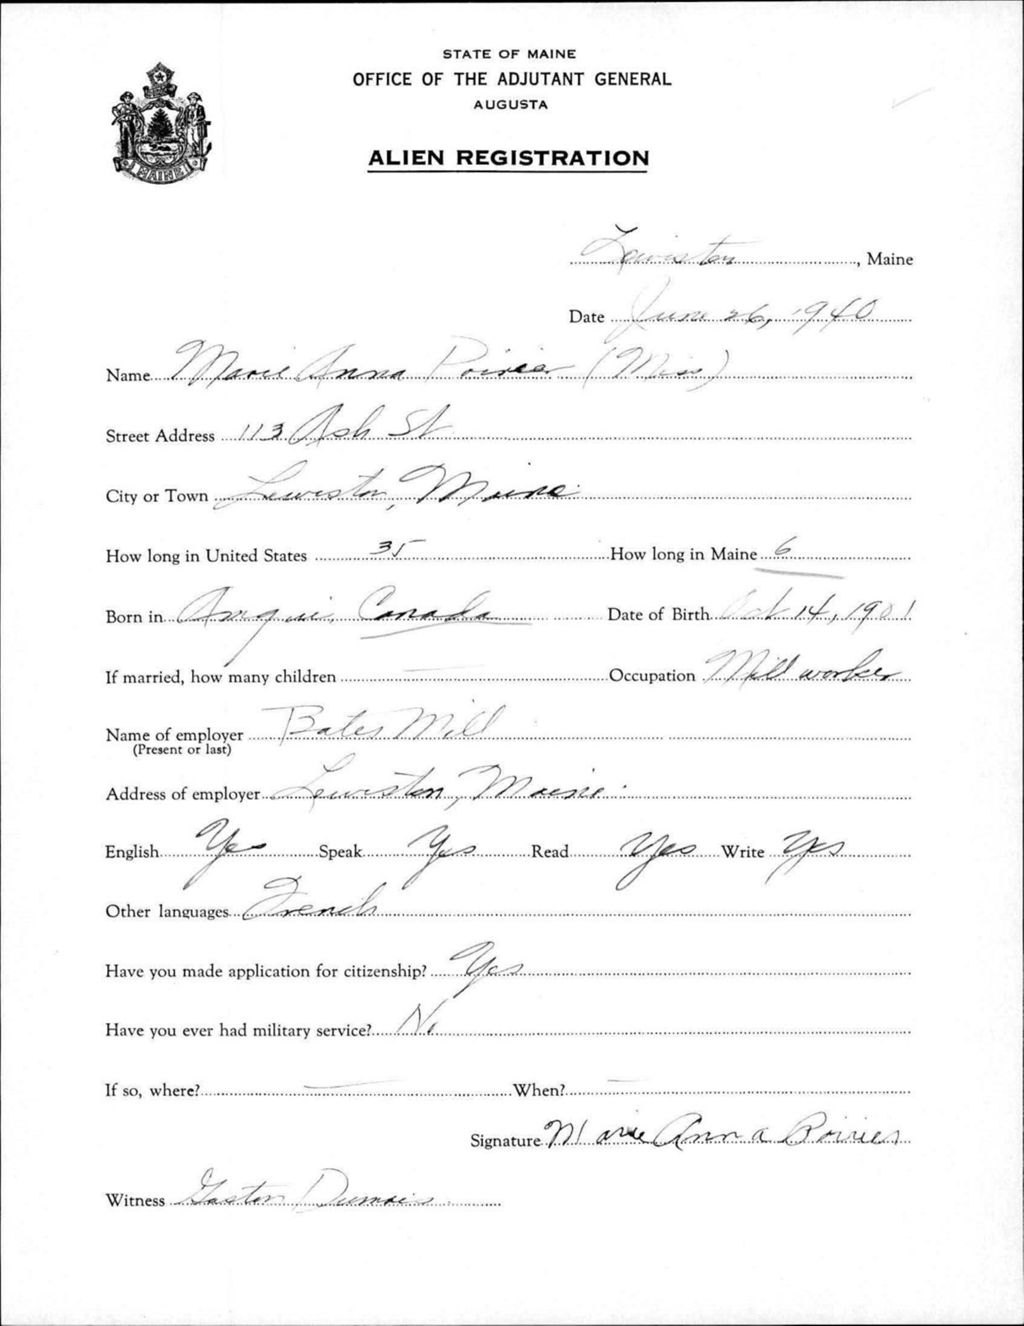 STATE OF MAINE
OFFICE OF THE ADJUTANT GENERAL
AUGUSTA
ALIEN REGISTRATION
MAINE
Lewiston, Maine
Date June 26, 1940
Name Marie Anna Poirier (Miss)
Street Address 113 Ash St
City or Town Lewiston, Maine
How long in United States 35 How long in Maine 6
Born in Amqui, Canada Date of Birth Oct 14, 1901
If married, how many children — Occupation Mill worker
Name of employer Bates Mill
(Present or last)
Address of employer Lewiston, Maine.
English Yes Speak Yes Read Yes Write Yes
Other languages French
Have you made application for citizenship? Yes
Have you ever had military service? No
If so, where? — When? —
Signature Marie Anna Poirier
Witness Gaston Dumais